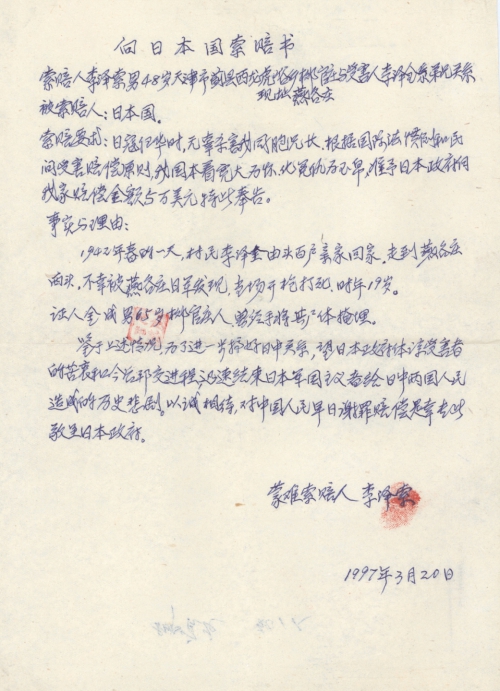 向日本国索赔书
索赔人李泽索男48岁天津市蓟县西龙虎峪乡柳官庄与受害人李泽全系弟兄关系
现址燕各庄
被索赔人：日本国。
索赔要求：日冦侵华时，无辜杀害我同胞兄长，根据国际法惯例和民
间受害赔偿原则，我国本着宽大为怀，化冤仇为玉帛，准予日本政府向
我家赔偿金额5万美元特此奉告。
事实与理由：
1942年春的一天，村民李泽全由水百户亲家回家，走到燕各庄
西头，不幸被燕各庄日军发现，当场开枪打死，时年19岁。
证人金成男65岁柳官庄人，曾经手将其尸体掩埋。
鉴于上述情况，为了进一步搞好日中关系，望日本政府体谅受害者
的苦衷和今后邦交进程，迅速结束日本军国主义者给日中两国人民
造成的历史悲剧。以诚相待，对中国人民早日谢罪赔偿是幸专此
敬呈日本政府。
蒙难索赔人 李泽索
1997年3月20日